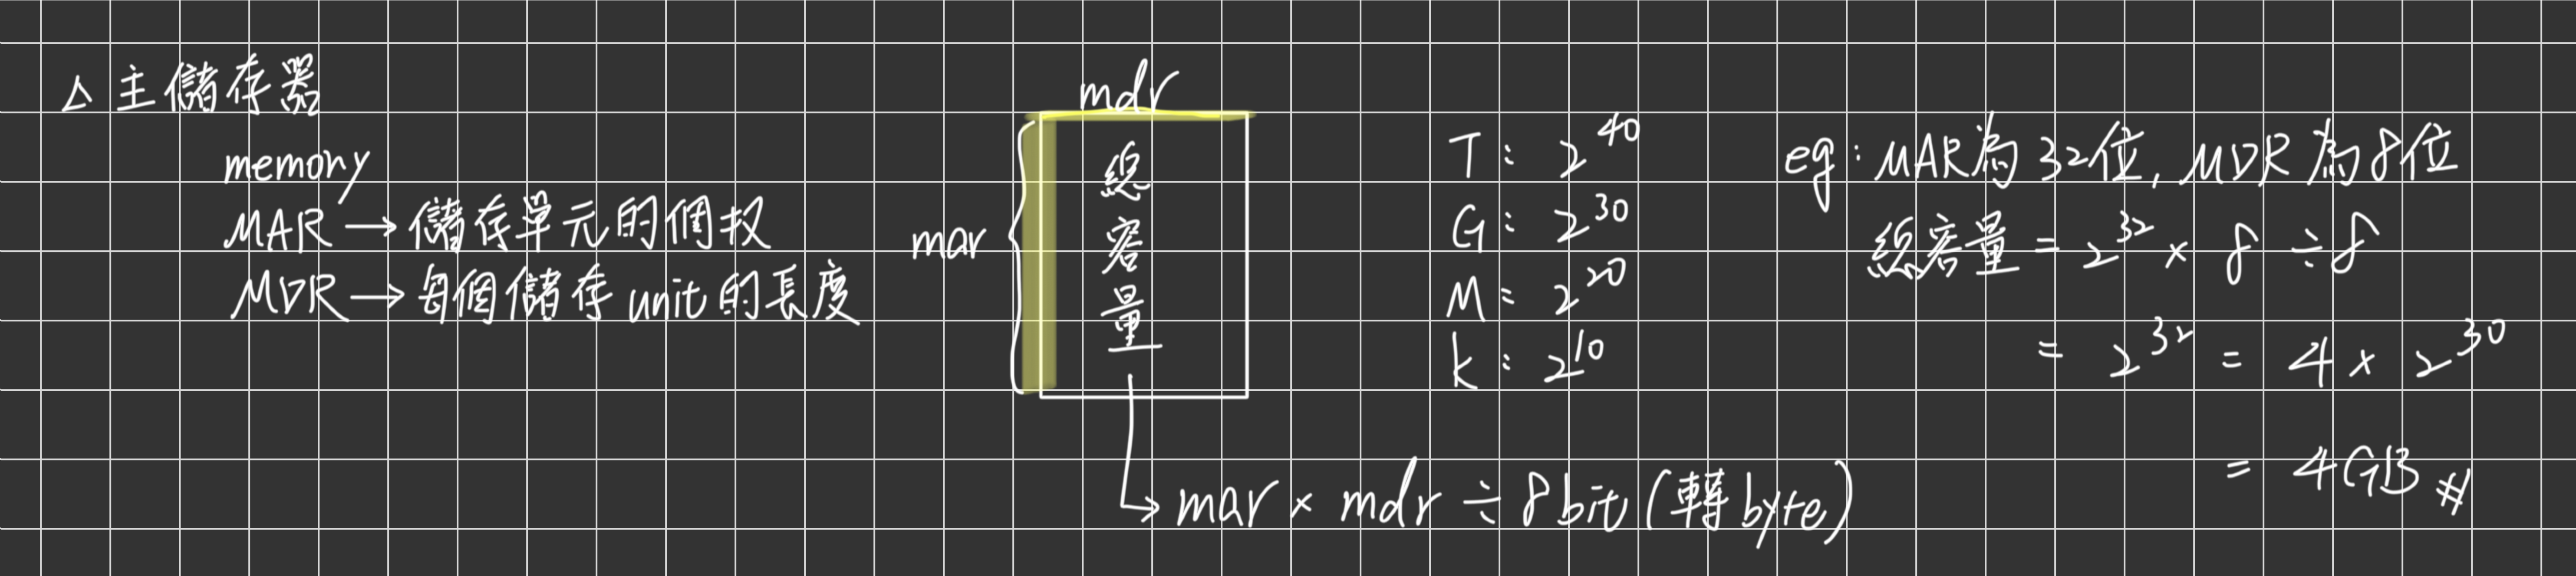 △ 主儲存器
memory
MAR → 儲存單元的個权
MDR → 每個儲存 unit 的長度
mdr
mar
總容量
→ mar × mdr ÷ 8 bit (轉 byte)
T: 2^40
G: 2^30
M: 2^20
k: 2^10
eg: MAR為32位, MDR為8位
總容量 = 2^32 × 8 ÷ 8
= 2^32 = 4 × 2^30
= 4GB #